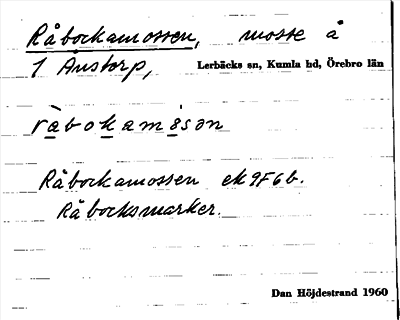 Råbockamossen, mosse å
1 Ånstorp, Lerbäcks sn, Kumla hd, Örebro län
råbokamåsən
Råbockamossen ek 9F6b.
Råbocksmarker.
Dan Höjdestrand 1960